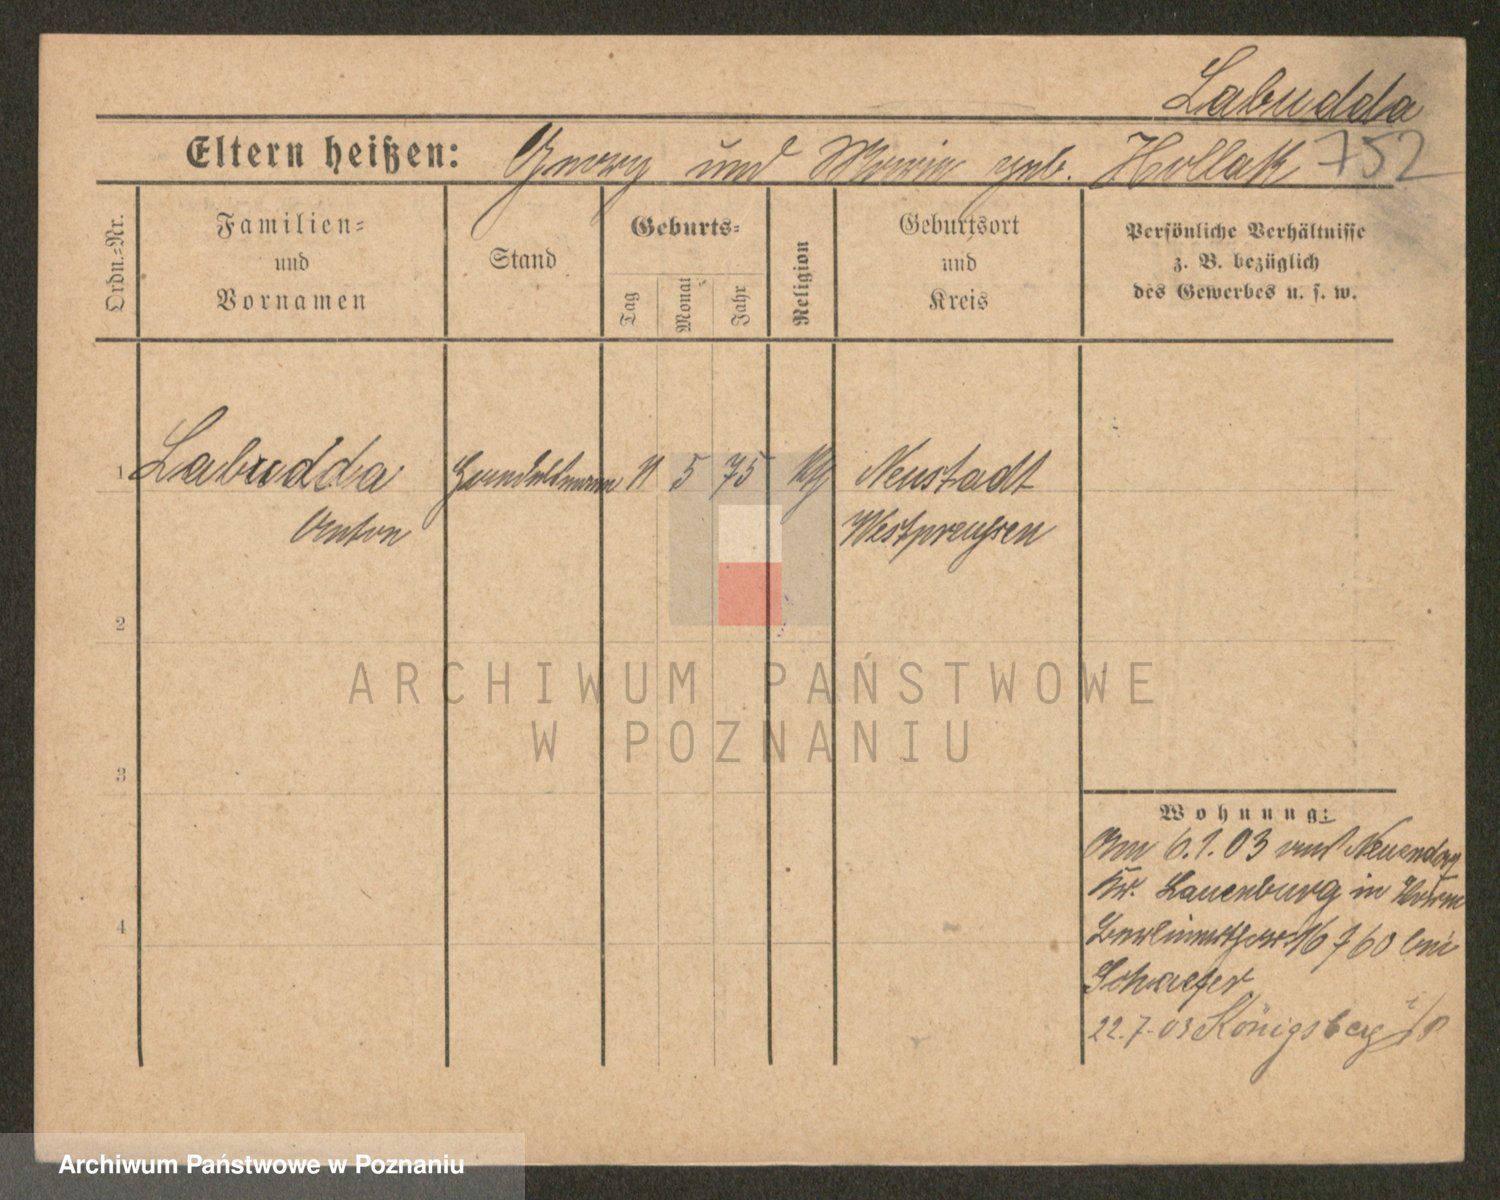 Labudda
Eltern heißen: Georg und Marie geb. Hollak 752
Ordn.=Nr.
Familien=
und
Vornamen
Stand
Geburts=
Tag
Monat
Jahr
Religion
Geburtsort
und
Kreis
Persönliche Verhältnisse
z. B. bezüglich
des Gewerbes u. s. w.
1 Labudda 11 5 75 Neustadt
Anton Westpreußen
2
ARCHIWUM PAŃSTWOWE
W POZNANIU
3
Wohnung:
Am 6.1.03 aus
Kr. Lauenburg in
bei
Schaefer
4
22.7.03 Königsberg
Archiwum Państwowe w Poznaniu